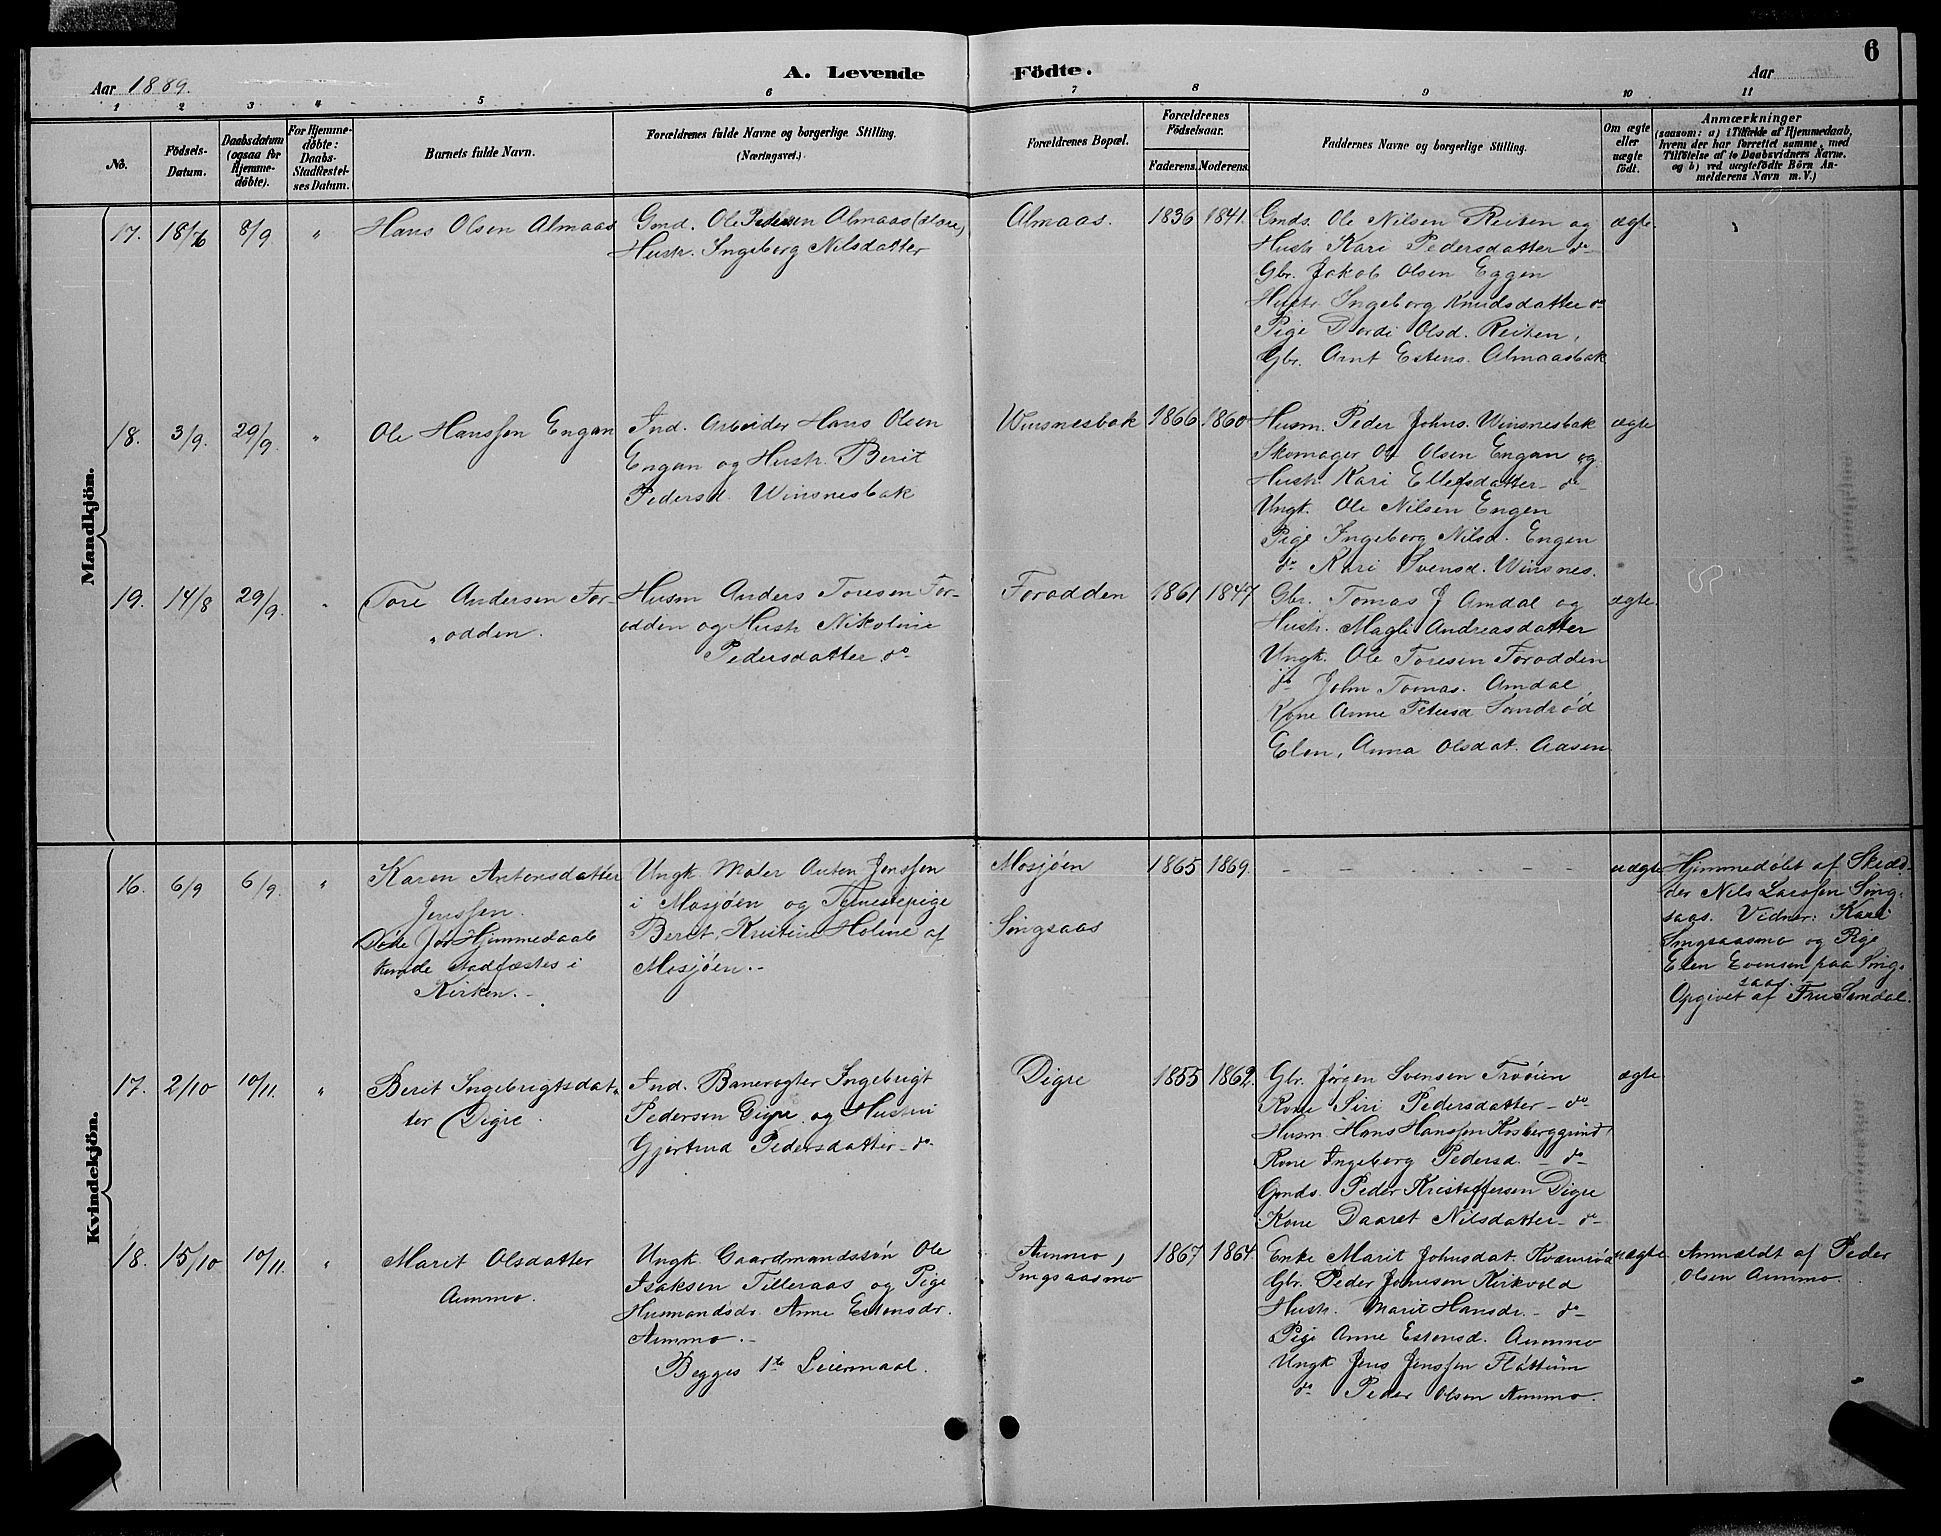 6
Aar 1889.
A. Levende Födte.
Aar
1 2 3 4 5 6 7 8 9 10 11
No.
Födsels-
Datum.
Daabsdatum
(ogsaa for
Hjemme-
döbte).
For Hjemme-
döbte:
Daabs-
Stadfæstel-
ses Datum.
Barnets fulde Navn.
Forældrenes fulde Navne og borgerlige Stilling.
(Næringsvei.)
Forældrenes Bopæl.
Forældrenes
Födselsaar.
Faderens. Moderens.
Faddernes Navne og borgerlige Stilling.
Om ægte
eller
uægte
födt.
Anmærkninger
(saasom: a) i Tilfælde af Hjemmedaab,
hvem der har forrettet samme, med
Tilföielse af to Daabsvidners Navne.
og b) ved uægtefödte Börn An-
melderens Navn m. V.)
Mandkjön.
17. 18/6 8/9 „
Hans Olsen Almaas
Gmd. Ole Pedersen Almaas (store)
Hustr. Ingeborg Nilsdatter
Almaas. 1836 1841.
Gmds. Ole Nilsen Reiten og
Hustr. Kari Pedersdatter do
Gbr. Jakob Olsen Eggen
Hustr. Ingeborg Knudsdatter do
Pige Dordi Olsd. Reiten,
Gbr. Arnt Estens. Almaasbak
ægte.
18. 3/9. 29/9. „
Ole Hanssen Engan
Ind. Arbeider Hans Olsen
Engan og Hustr. Berit
Pedersd. Winsnesbak
Winsnesbak 1866 1860
Husm. Peder Johns. Winsnesbak
Skomager Ole Olsen Engan og
Hustr. Kari Ellefsdatter - do -
Ungk. Ole Nilsen Engen
Pige Ingeborg Nilsd. Engen
do Kari Svensd. Winsnes.
ægte
19. 14/8 29/9. „
Tore Andersen For-
„odden.
Husm Anders Toresen For-
odden og Hustr Nikoline
Pedersdatter do
Forodden 1861 1847
Gbr. Tomas J Amdal og
Hustr. Magli Andreasdatter
Ungk. Ole Toresen Forodden
do John Tomas. Amdal,
Kone Anne Petersd Sandrød
Elen, Anna Olsdat. Aasen
ægte.
Kvindekjön.
16. 6/9 6/9. „
Karen Antonsdatter
Jenssen.
Døde før Hjemmedaab
kunde stadfæstes i
Kirken. -
Ungk. Maler Anton Jenssen
i Mosjøen og Tjenestepige
Beret, Kristine Holine af
Mosjøen. -
Mosjøen
Singsaas
1865 1869.
- - - . . . - -
uægte
Hjemmedøbt af
Nils Larssen Sing-
saas. Vidner: Kari
Singsaasmo og Pige
Elen Evensen paa Sing-
saas.
Opgivet af Fru Samdal.
17. 2/10 10/11. „
Beret Ingebrigtsdat-
ter Digre.
Ind. Banevogter Ingebrigt
Pedersen Digre og Hustru
Gjertrud Pedersdatter - do -
Digre 1855 1862.
Gbr. Jørgen Svensen Trøøien
Kone Siri Pedersdatter - do
Husm. Hans Hanssen Kosberggrind
Kone Ingeborg Pedersd. - do -
Gmds. Peder Kristoffersen Digre
Kone Daaret Nilsdatter - do -
ægte
18. 15/10 10/11. „
Marit Olsdatter
Aunmo.
Ungk. Gaardmandssøn Ole
Isaksen Tilleraas og Pige
Husmandsdr. Anne Estensdr.
Aunmo. -
Begges 1ste Leiermaal.
Aunmo,
Singsaasmo
1867 1864
Enke Marit Johnsdat. Kværnrød
Gbr. Peder Jonsen Kirkvold
Hustr. Marit Hansdr. - do -
Pige Anne Estensd. Aunmo
Ungk Jens Jenssen Fløttum
do Peder Olsen Aunmo.
uægte
Anmeldt af Peder
Olsen Aunmo.